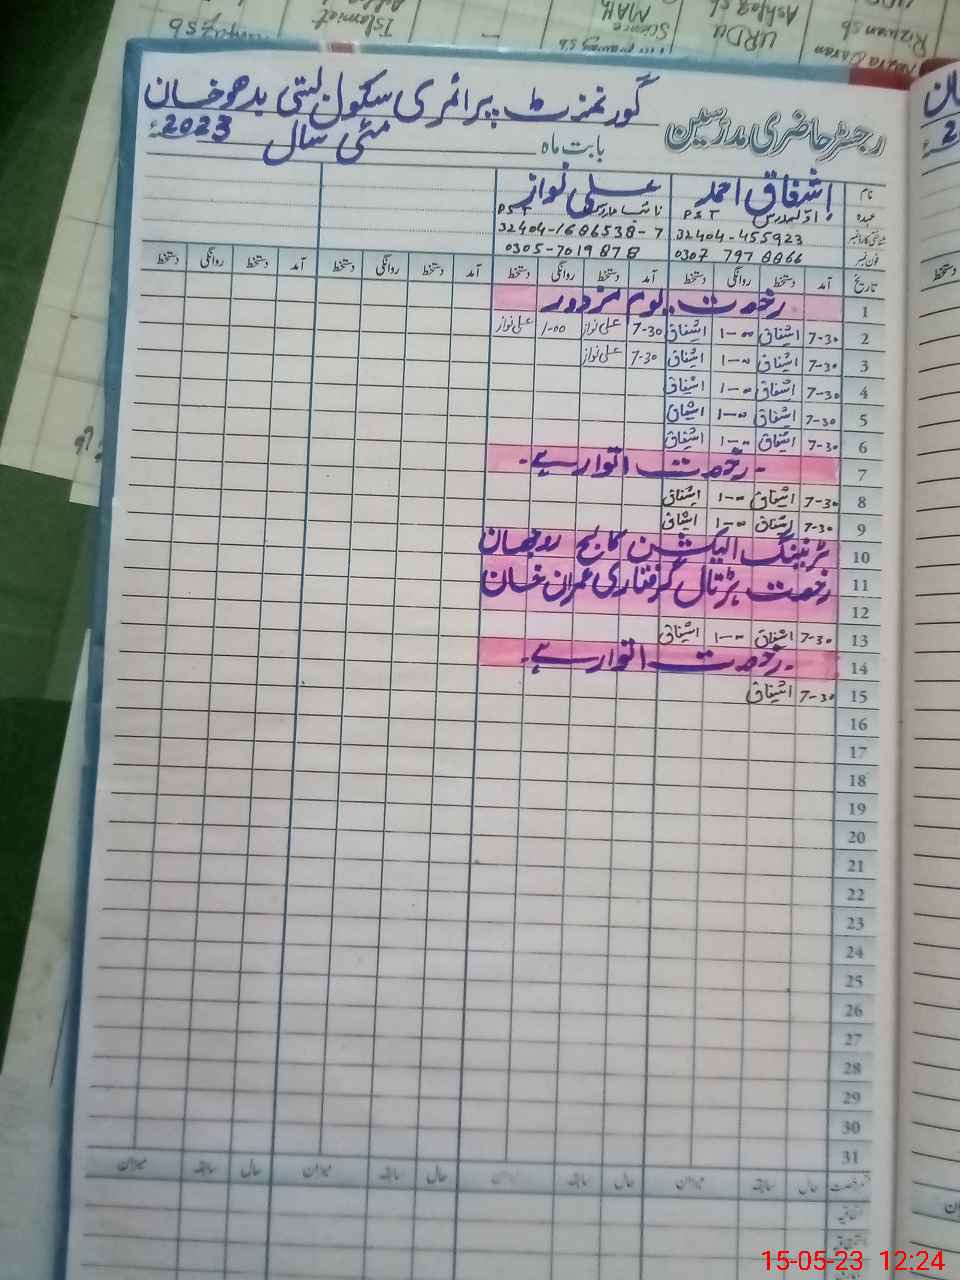 Islamiat
Science
MATH
URDU
Ashfaq sb
Rizwan sb
گورنمنٹ پرائمری سکول بستی بدھوخان
رجسٹر حاضری مدرسین
بابت ماہ مئی سال 2023ء
نام اشفاق احمد علی نواز
عہدہ اول مدرس PST نائب مدرس PST
شناختی کارڈ نمبر 32404-455923 32404-1686538-7
فون نمبر 0307 797 8866 0305-7019878
تاریخ آمد دستخط روانگی دستخط آمد دستخط روانگی دستخط آمد دستخط روانگی دستخط آمد دستخط روانگی دستخط
1 رخصت یوم مزدور
2 7-30 اشفاق 1-00 اشفاق 7-30 علی نواز 1-00 علی نواز
3 7-30 اشفاق 1-00 اشفاق 7-30 علی نواز
4 7-30 اشفاق 1-00 اشفاق
5 7-30 اشفاق 1-00 اشفاق
6 7-30 اشفاق 1-00 اشفاق
7 رخصت اتوار ہے۔
8 7-30 اشفاق 1-00 اشفاق
9 7-30 اشفاق 1-00 اشفاق
10 ٹریننگ الیکشن کالج روجھان
11 رخصت ہڑتال گرفتاری عمران خان
12
13 7-30 اشفاق 1-00 اشفاق
14 رخصت اتوار ہے۔
15 7-30 اشفاق
16
17
18
19
20
21
22
23
24
25
26
27
28
29
30
31
رخصت حال سابقہ میزان حال سابقہ میزان حال سابقہ میزان حال سابقہ میزان
اتفاقیہ
15-05-23 12:24